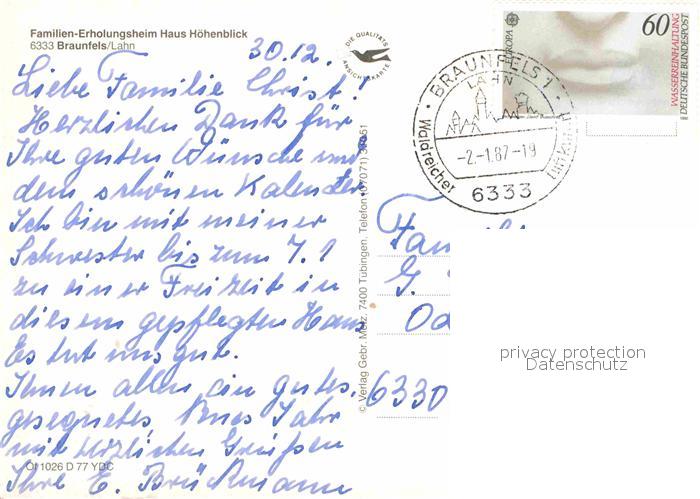 Familien-Erholungsheim Haus Höhenblick
6333 Braunfels/Lahn
30.12.
Liebe Familie Christ!
Herzlichen Dank für
Ihre guten Wünsche und
dem schönen Kalender
Ich bin mit meiner
Schwester bis zum 7.1
zu einer Freizeit in
diesem gepflegten Haus
Es tut uns gut.
Ihnen allen ein gutes,
gesegnetes Neues Jahr
mit herzlichen Grüßen
Ihre E. Brückmann
ÖI 1026 D 77 YDC
DIE QUALITÄTS
ANSICHTSKARTE
© Verlag Gebr. Metz, 7400 Tübingen, Telefon (07071)
Fam
G.
6330
EUROPA
60
WASSERREINHALTUNG
DEUTSCHE BUNDESPOST
BRAUNFELS 1
LAHN
-2.-1.87-19
Waldreicher
6333
privacy protection
Datenschutz